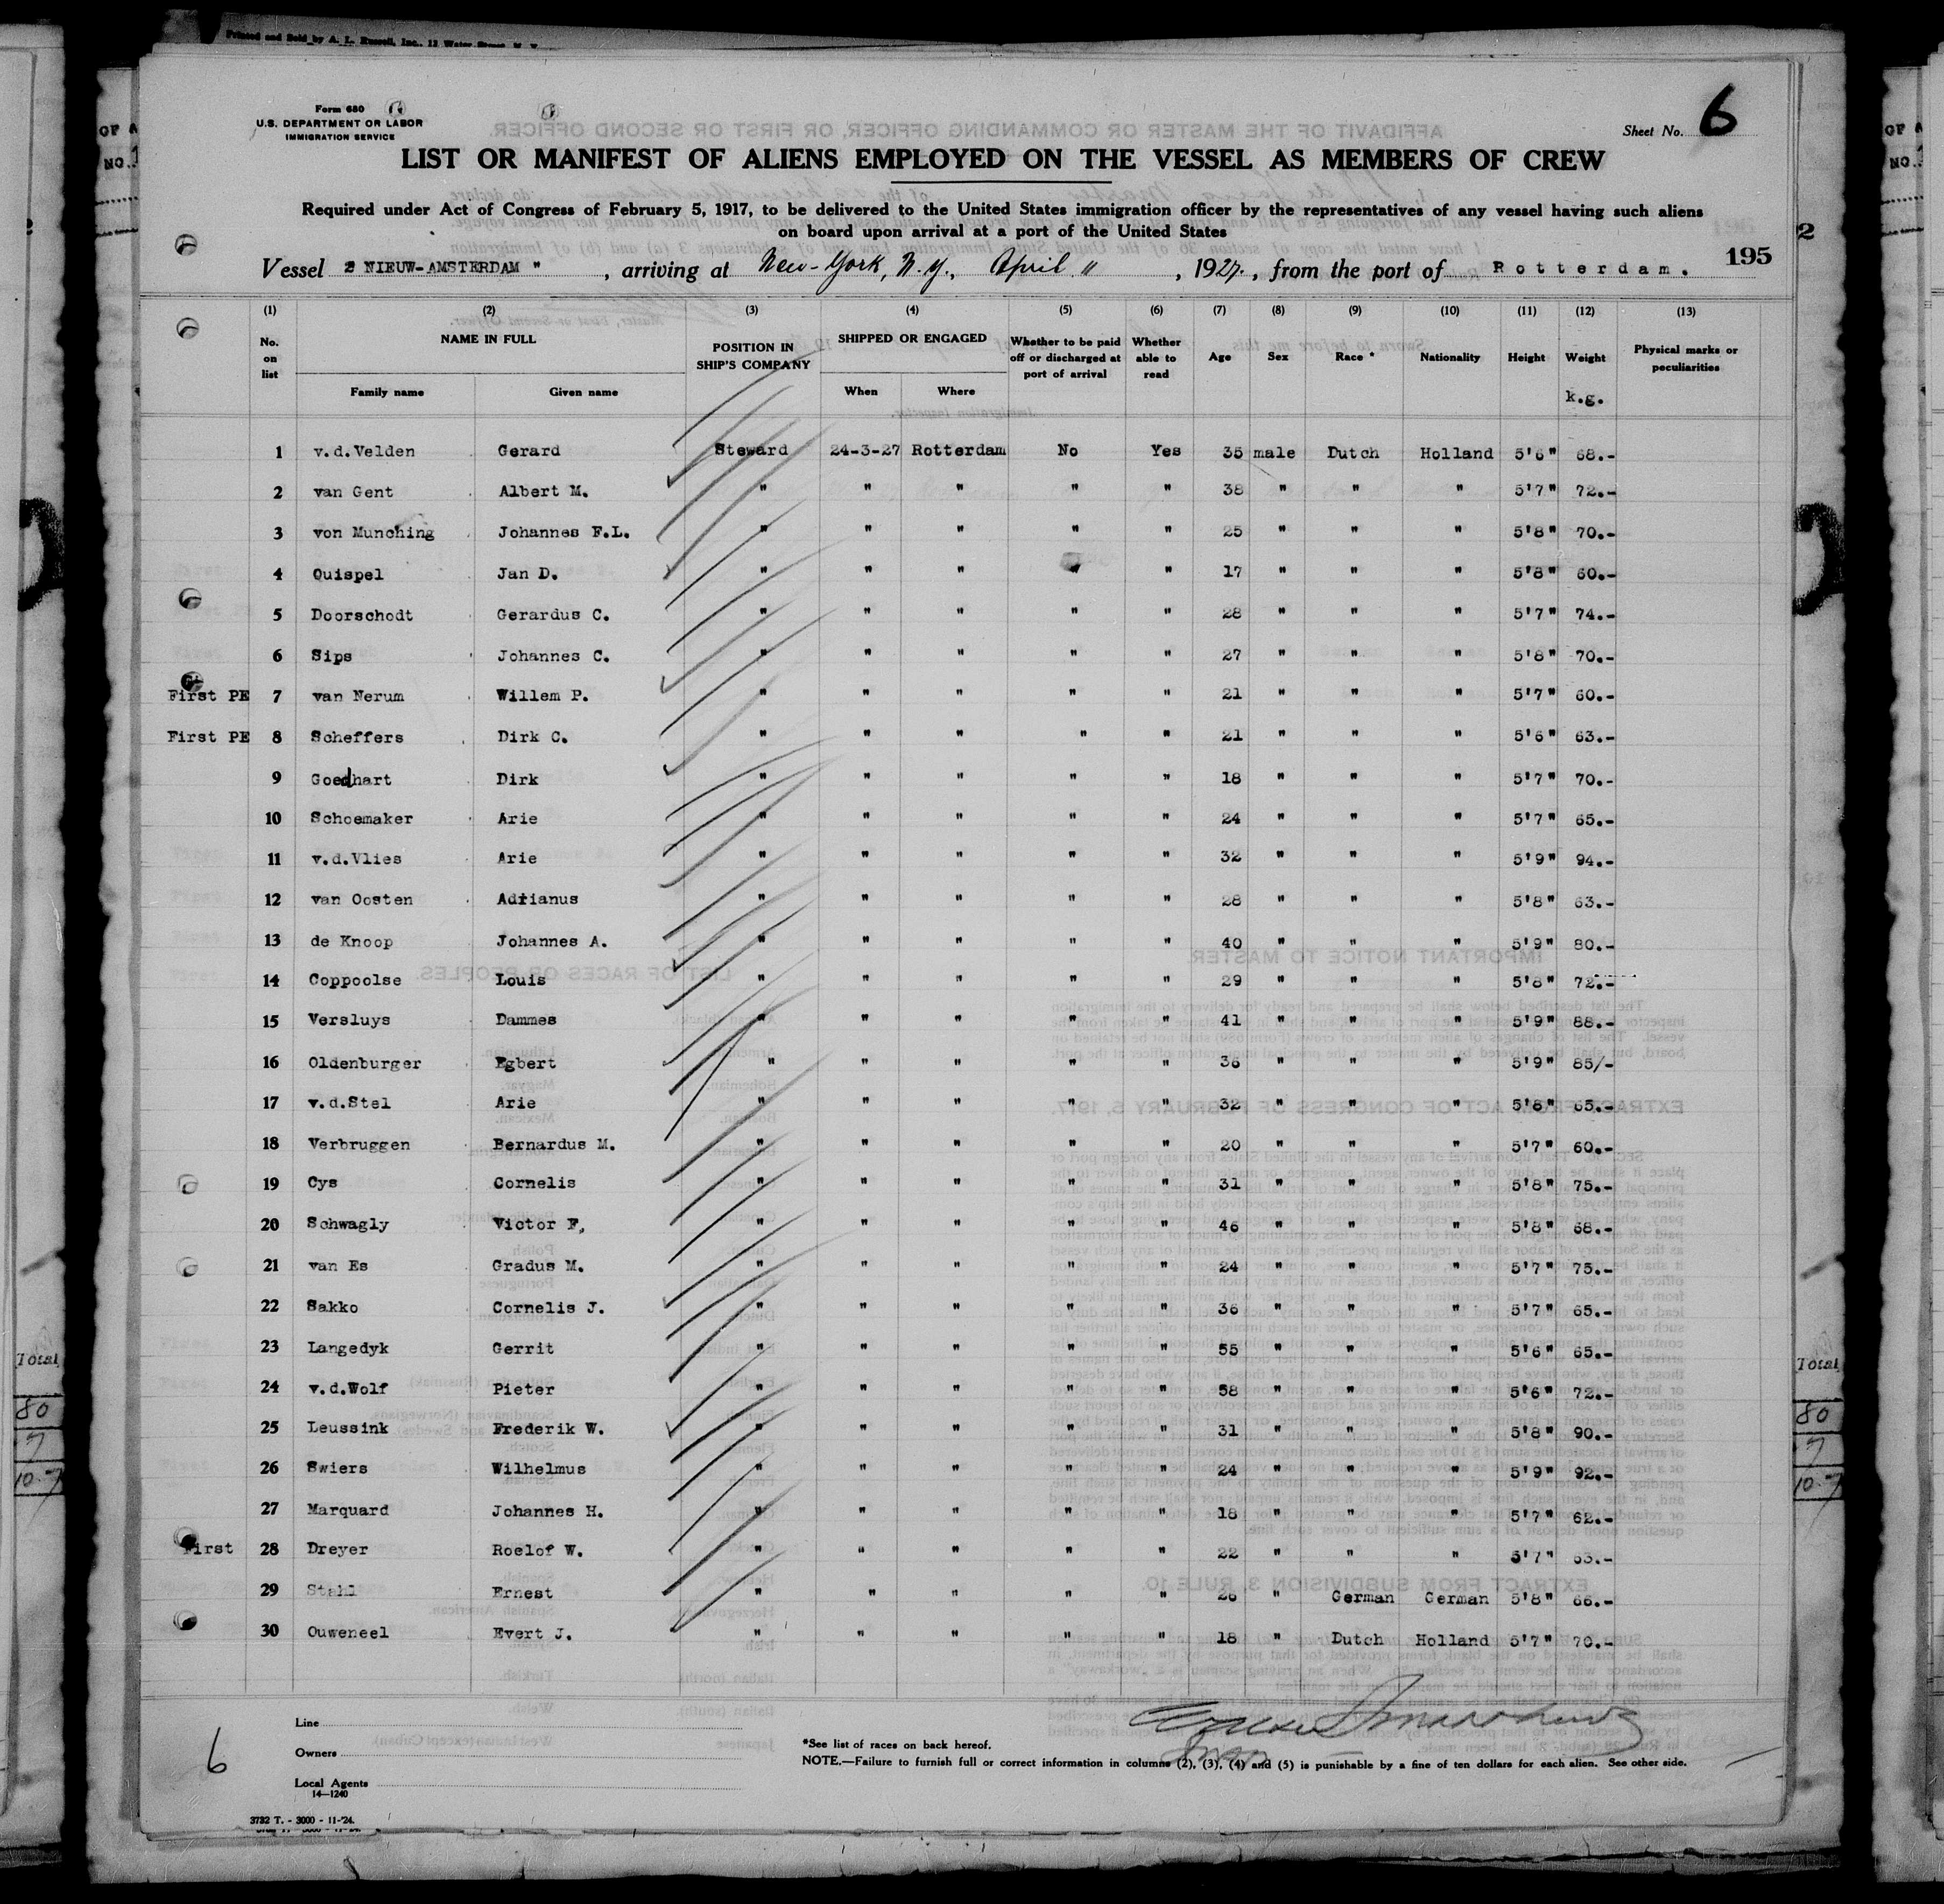 Printed and Sold by A. L. Russell, Inc., 12 Water Street, N. Y.
Form 680
U.S. DEPARTMENT OR LABOR
IMMIGRATION SERVICE
Sheet No. 6
LIST OR MANIFEST OF ALIENS EMPLOYED ON THE VESSEL AS MEMBERS OF CREW
Required under Act of Congress of February 5, 1917, to be delivered to the United States immigration officer by the representatives of any vessel having such aliens
on board upon arrival at a port of the United States
195
Vessel " NIEUW-AMSTERDAM ", arriving at New-York, N.Y., April ", 1927., from the port of Rotterdam.
(1) (2) (3) (4) (5) (6) (7) (8) (9) (10) (11) (12) (13)
No. on list NAME IN FULL Family name Given name POSITION IN SHIP'S COMPANY SHIPPED OR ENGAGED When Where Whether to be paid off or discharged at port of arrival Whether able to read Age Sex Race * Nationality Height Weight k.g. Physical marks or peculiarities
1 v.d.Velden Gerard Steward 24-3-27 Rotterdam No Yes 35 male Dutch Holland 5'6" 68.-
2 van Gent Albert M. " " " " " 38 " " " 5'7" 72.-
3 von Munching Johannes F.L. " " " " " 25 " " " 5'8" 70.-
4 Quispel Jan D. " " " " " 17 " " " 5'8" 60.-
5 Doorschodt Gerardus C. " " " " " 28 " " " 5'7" 74.-
6 Sips Johannes C. " " " " " 27 " " " 5'8" 70.-
First PE 7 van Nerum Willem P. " " " " " 21 " " " 5'7" 60.-
First PE 8 Scheffers Dirk C. " " " " " 21 " " " 5'6" 63.-
9 Goedhart Dirk " " " " " 18 " " " 5'7" 70.-
10 Schoemaker Arie " " " " " 24 " " " 5'7" 65.-
11 v.d.Vlies Arie " " " " " 32 " " " 5'9" 94.-
12 van Oosten Adrianus " " " " " 28 " " " 5'8" 63.-
13 de Knoop Johannes A. " " " " " 40 " " " 5'9" 80.-
14 Coppoolse Louis " " " " 29 " " " 5'8" 72.-
15 Versluys Dammes " " " " " 41 " " " 5'9" 88.-
16 Oldenburger Egbert " " " " " 36 " " " 5'9" 85/-
17 v.d.Stel Arie " " " " " 32 " " " 5'8" 65.-
18 Verbruggen Bernardus M. " " " " " 20 " " " 5'7" 60.-
19 Cys Cornelis " " " " " 31 " " " 5'8" 75.-
20 Schwagly Victor F, " " " " " 46 " " " 5'8" 68.-
21 van Es Gradus M. " " " " " 24 " " " 5'7" 75.-
22 Sakko Cornelis J. " " " " " 36 " " " 5'7" 65.-
23 Langedyk Gerrit " " " " " 55 " " " 5'6" 65.-
24 v.d.Wolf Pieter " " " " " 58 " " " 5'6" 72.-
25 Leussink Frederik W. " " " " " 31 " " " 5'8" 90.-
26 Swiers Wilhelmus " " " " " 24 " " " 5'9" 92.-
27 Marquard Johannes H. " " " " " 18 " " " 5'7" 62.-
First 28 Dreyer Roelof W. " " " " " 22 " " " 5'7" 63.-
29 Stahl Ernest " " " " " 26 " German German 5'8" 66.-
30 Ouweneel Evert J. " " " " " 18 " Dutch Holland 5'7" 70.-
6
Line
Owners
Local Agents
14—1240
*See list of races on back hereof.
NOTE.—Failure to furnish full or correct information in columns (2), (3), (4) and (5) is punishable by a fine of ten dollars for each alien. See other side.
3732 T. - 3000 - 11-'24.
Total
80
7
10.7
Total
80
7
10.7